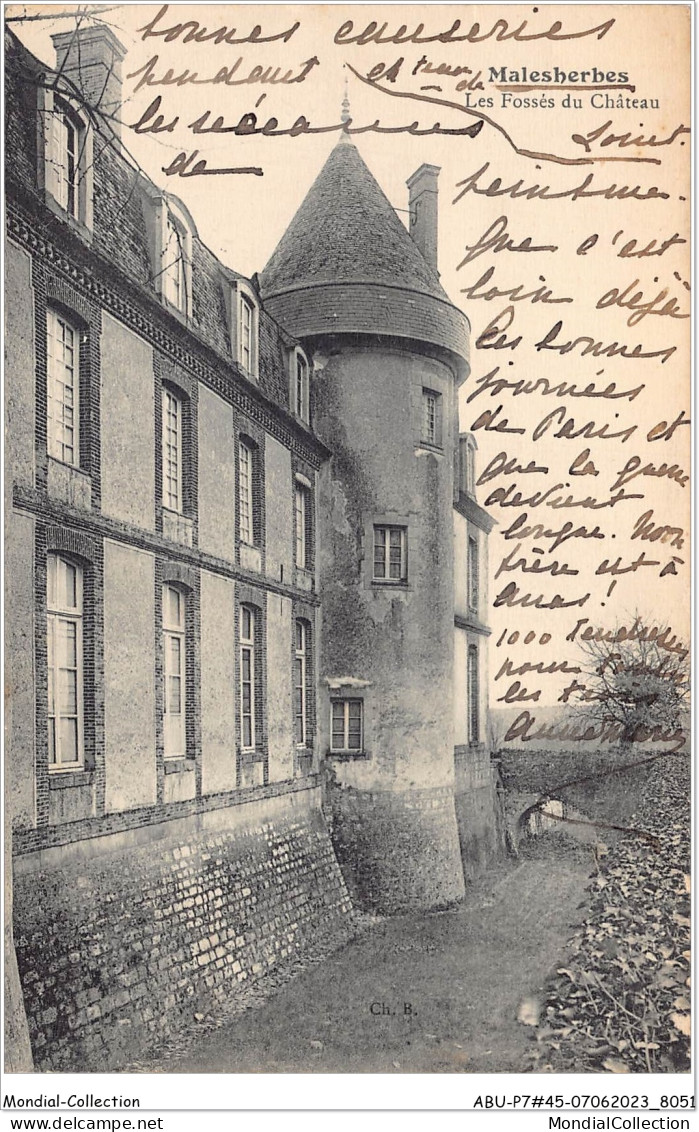 bonnes causeries
pendant et
les séances
de
Malesherbes
Les Fossés du Château
Loiret.
peinture.
Que c'est
loin déjà
les bonnes
journées
de Paris et
que la guerre
devient
longue. Mon
frère est à
Arras!
1000 Tendresses
pour toutes
les
Annemarie
Ch. B.
Mondial-Collection
ABU-P7#45-07062023_8051
MondialCollection